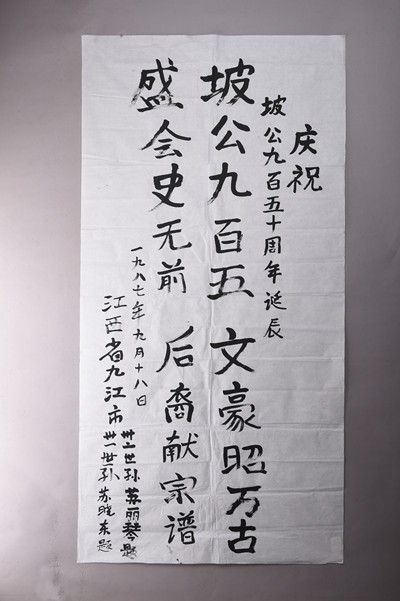 庆祝
坡公九百五十周年诞辰
坡公九百五 文豪昭万古
盛会史无前 后裔献宗谱
一九八七年九月十八日
江西省九江市
卅二世孙 苏丽琴题
卅一世孙 苏晓东题